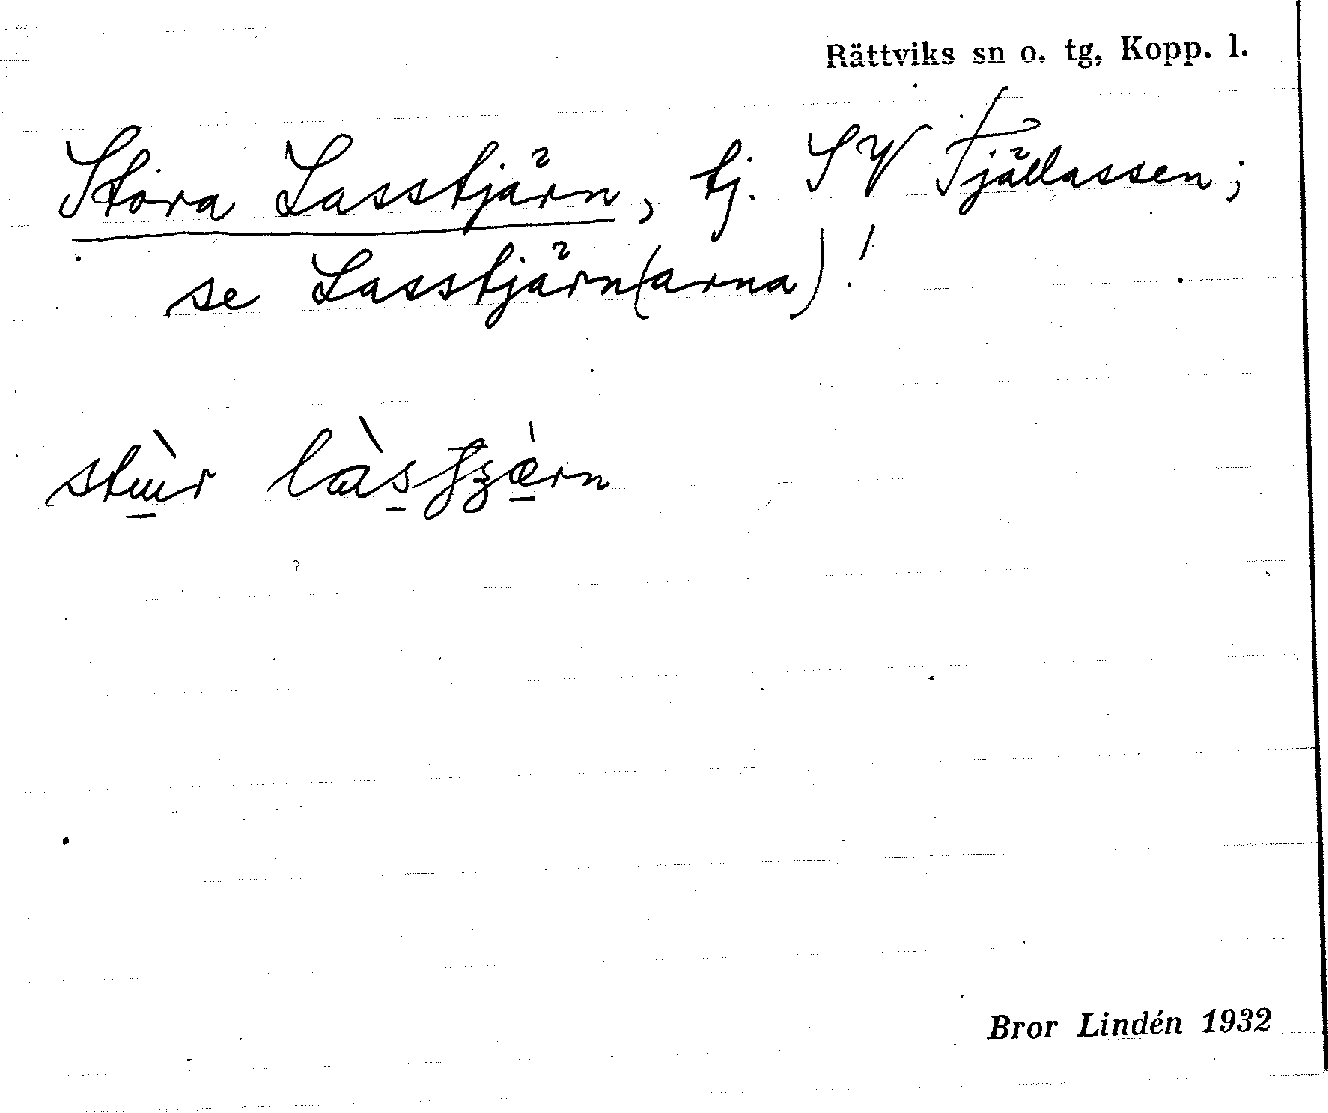 Rättviks sn o. tg, Kopp. l.
Stora Lasstjärn, tj. SV Fjällassen;
se Lasstjärn(arna)!
Bror Lindén 1932